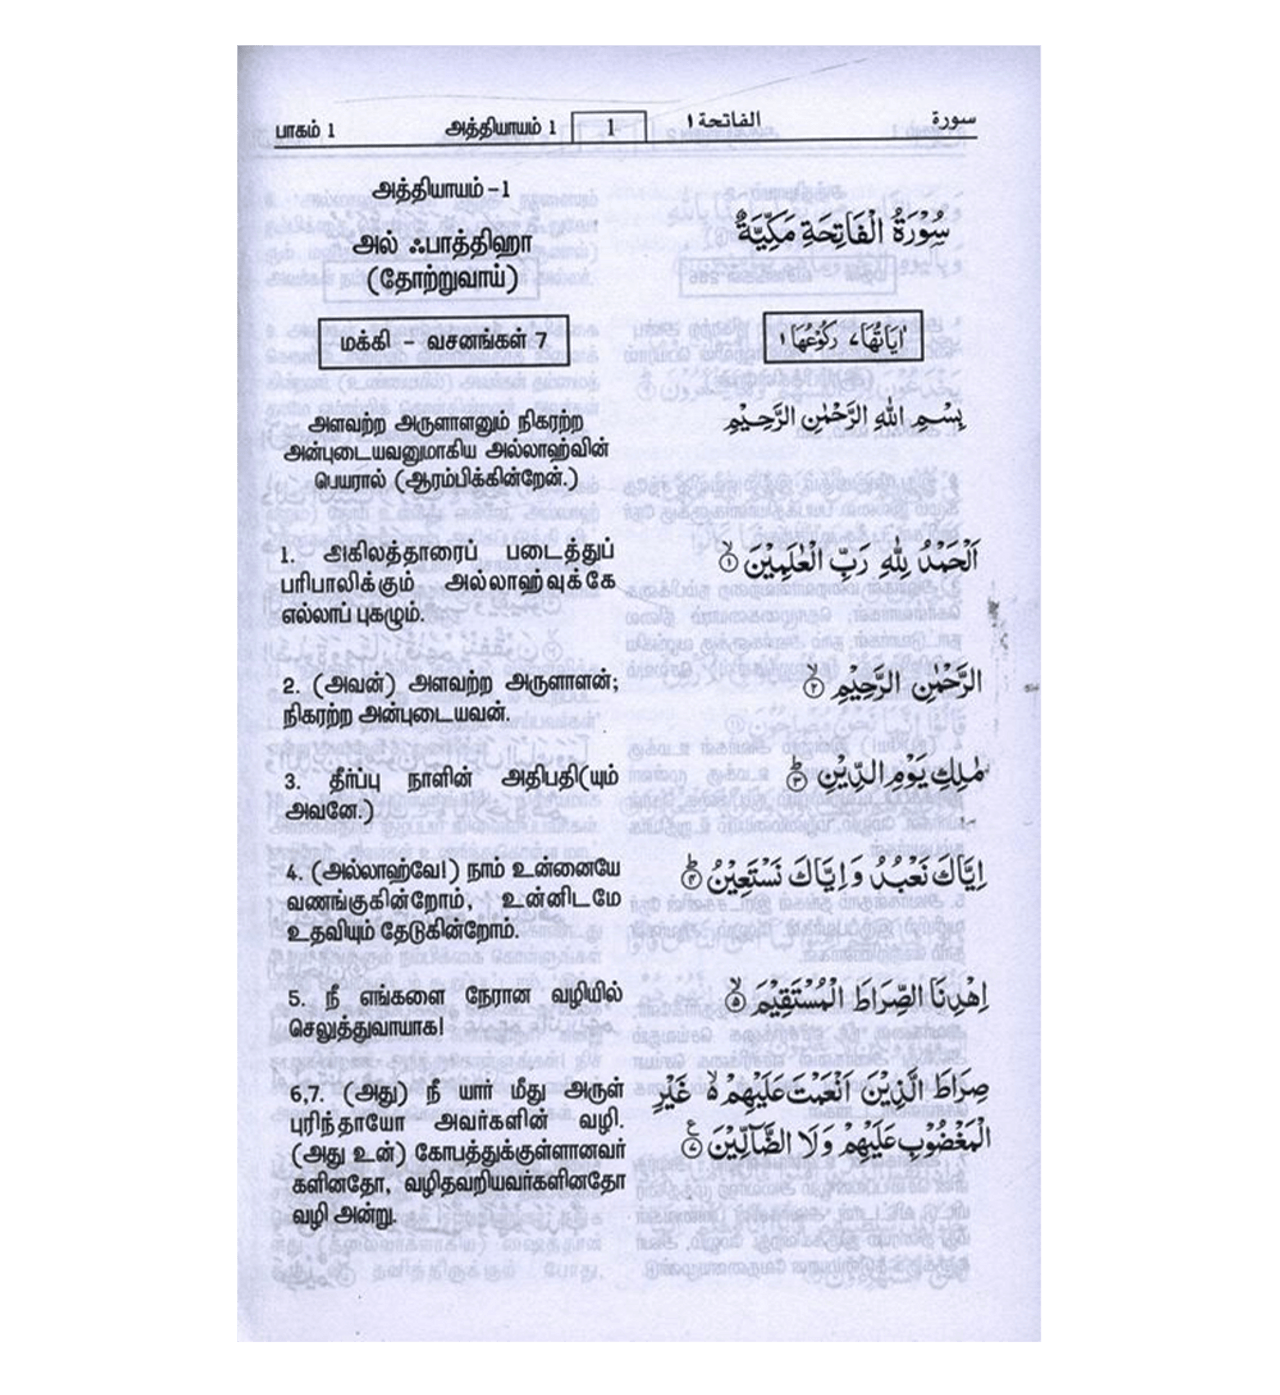 பாகம் 1 அத்தியாயம் 1 1 الفاتحة ١ سورة
அத்தியாயம் -1
அல் ஃபாத்திஹா
(தோற்றுவாய்)
மக்கி - வசனங்கள் 7
அளவற்ற அருளாளனும் நிகரற்ற
அன்புடையவனுமாகிய அல்லாஹ்வின்
பெயரால் (ஆரம்பிக்கின்றேன்.)
1. அகிலத்தாரைப் படைத்துப்
பரிபாலிக்கும் அல்லாஹ்வுக்கே
எல்லாப் புகழும்.
2. (அவன்) அளவற்ற அருளாளன்;
நிகரற்ற அன்புடையவன்.
3. தீர்ப்பு நாளின் அதிபதி(யும்
அவனே.)
4. (அல்லாஹ்வே!) நாம் உன்னையே
வணங்குகின்றோம், உன்னிடமே
உதவியும் தேடுகின்றோம்.
5. நீ எங்களை நேரான வழியில்
செலுத்துவாயாக!
6,7. (அது) நீ யார் மீது அருள்
புரிந்தாயோ அவர்களின் வழி.
(அது உன்) கோபத்துக்குள்ளானவர்
களினதோ, வழிதவறியவர்களினதோ
வழி அன்று.
سُوْرَةُ الْفَاتِحَةِ مَكِّيَّةٌ
اٰيَاتُهَا ٧ رَكُوْعُهَا ١
بِسْمِ اللهِ الرَّحْمٰنِ الرَّحِيْمِ
اَلْحَمْدُ لِلّٰهِ رَبِّ الْعٰلَمِيْنَ ۙ﴿١﴾
الرَّحْمٰنِ الرَّحِيْمِ ۙ﴿٢﴾
مٰلِكِ يَوْمِ الدِّيْنِ ؕ﴿٣﴾
اِيَّاكَ نَعْبُدُ وَاِيَّاكَ نَسْتَعِيْنُ ؕ﴿٤﴾
اِهْدِنَا الصِّرَاطَ الْمُسْتَقِيْمَ ۙ﴿٥﴾
صِرَاطَ الَّذِيْنَ اَنْعَمْتَ عَلَيْهِمْ ۙ٥ غَيْرِ
الْمَغْضُوْبِ عَلَيْهِمْ وَلَا الضَّآلِّيْنَ ﴿٧﴾ ع